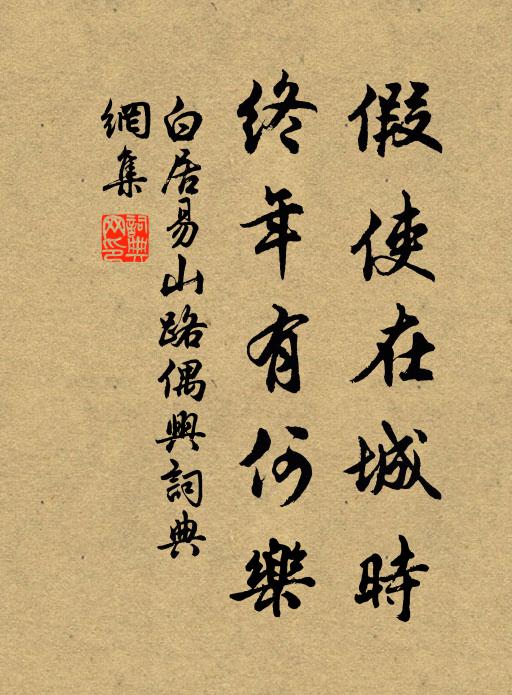 假使在城時
終年有何樂
白居易山路偶興詞典
網集
詞典网印